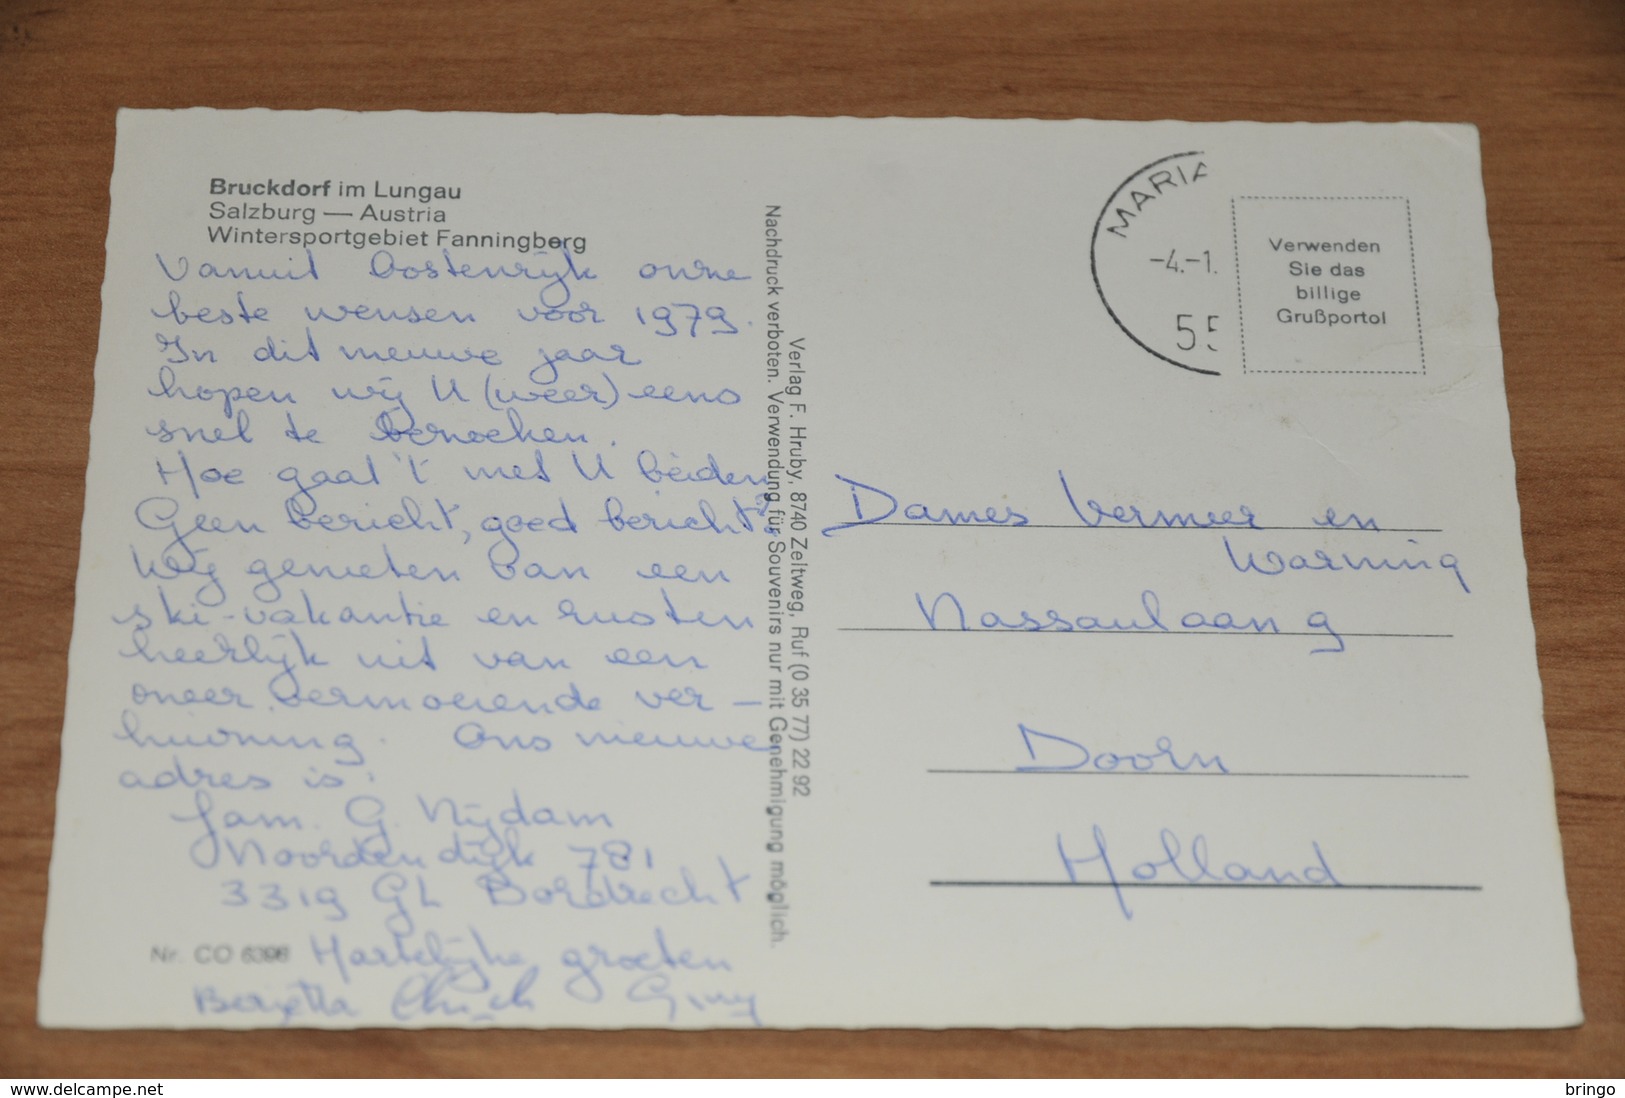 Bruckdorf im Lungau
Salzburg — Austria
Wintersportgebiet Fanningberg
Vanuit Oostenrijk onze
beste wensen voor 1979.
In dit nieuwe jaar
hopen wij U (weer) eens
snel te bezoeken.
Hoe gaat 't met U beiden?
Geen bericht, goed bericht?
Wij genieten van een
ski-vakantie en rusten
heerlijk uit van een
zeer vermoeiende ver-
huizing. Ons nieuwe
adres is:
Fam. G. Nijdam
Noordendijk 781
3319 GL Dordrecht
Nr. CO 6396
Hartelijke groeten
Giny
Verlag F. Hruby, 8740 Zeltweg, Ruf (0 35 77) 22 92
Nachdruck verboten. Verwendung für Souvenirs nur mit Genehmigung möglich.
MARIA
-4.-1.
55
Verwenden
Sie das
billige
Grußporto!
Dames Vermeer en
Warning
Nassaulaan 9
Doorn
Holland
www.delcampe.net
bringo